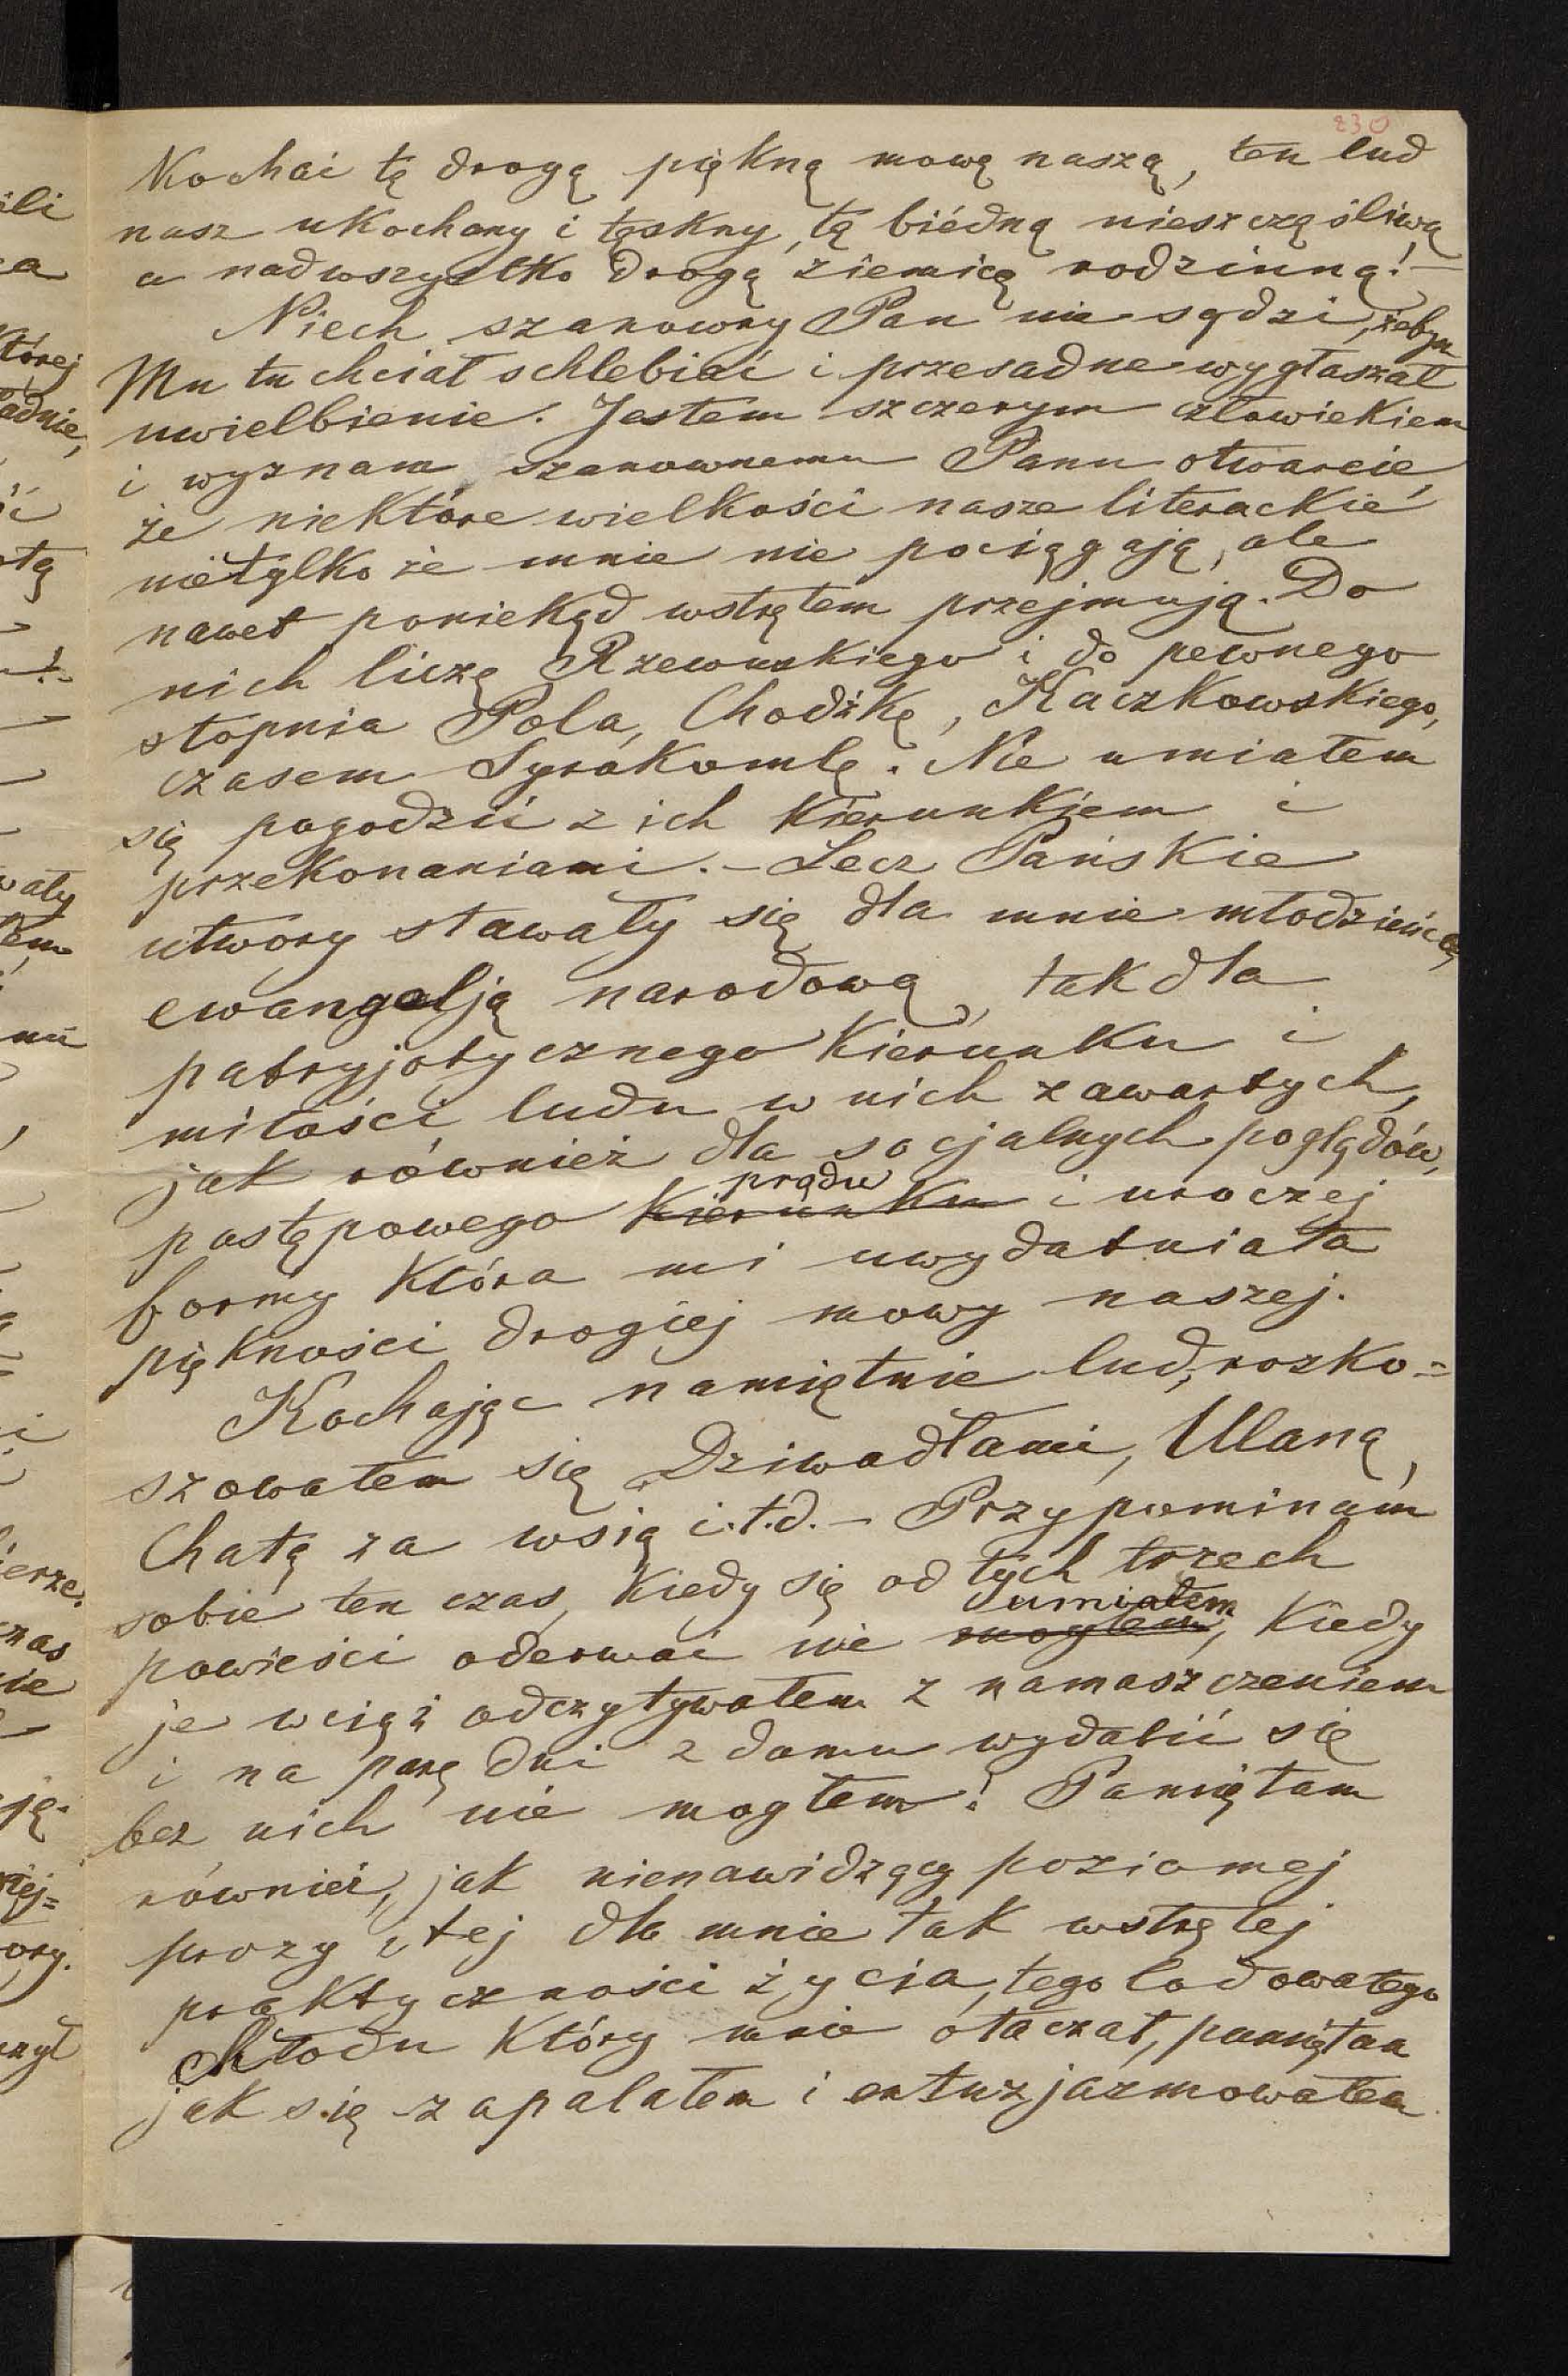 230
Kochać tę drogą piękną mowę naszą, ten lud
nasz ukochany i tęskny, tę biédną nieszczęśliwą
a nadwszystko drogą ziemicę rodzinną! –
Niech szanowny Pan nie sądzi, żebym
Mu tu chciał schlebiać i przesadne wygłaszał
uwielbienie. Jestem szczerym człowiekiem
i wyznam szanownemu Panu otwarcie,
że niektóre wielkości nasze literackie
nietylko że mnie nie pociągają, ale
nawet poniekąd wstrętem przejmują. Do
nich liczę Rzewuskiego i do pewnego
stopnia Pola, Chodźkę, Kaczkowskiego,
czasem Syrokomlę. Nie umiałem
się pogodzić z ich kierunkiem i
przekonaniami. – Lecz Pańskie
utwory stawały się dla mnie młodzieńca,
ewangelją narodową, tak dla
patryjotycznego kierunku i
miłości ludu w nich zawartych,
jak również dla socjalnych poglądów,
prądu
postępowego kierunku i uroczej
formy która mi uwydatniała
piękności drogiej mowy naszej.
Kochając namiętnie lud, rozko=
szowałem się Dziwadłami, Ulaną,
Chatą za wsią i.t.d. – Przypominam
sobie ten czas, kiedy się od tych trzech
umiałem
powieści oderwać nie mogłem, kiedy
je wciąż odczytywałem z namaszczeniem
i na parę dni z domu wydalić się
bez nich nie mogłem! Pamiętam
również, jak nienawidzący poziomej
prozy i tej dla mnie tak wstrętej
praktyczności życia, tego lodowatego
chłodu który mnie otaczał, pamiętam
jak się zapalałem i entuzjazmowałem